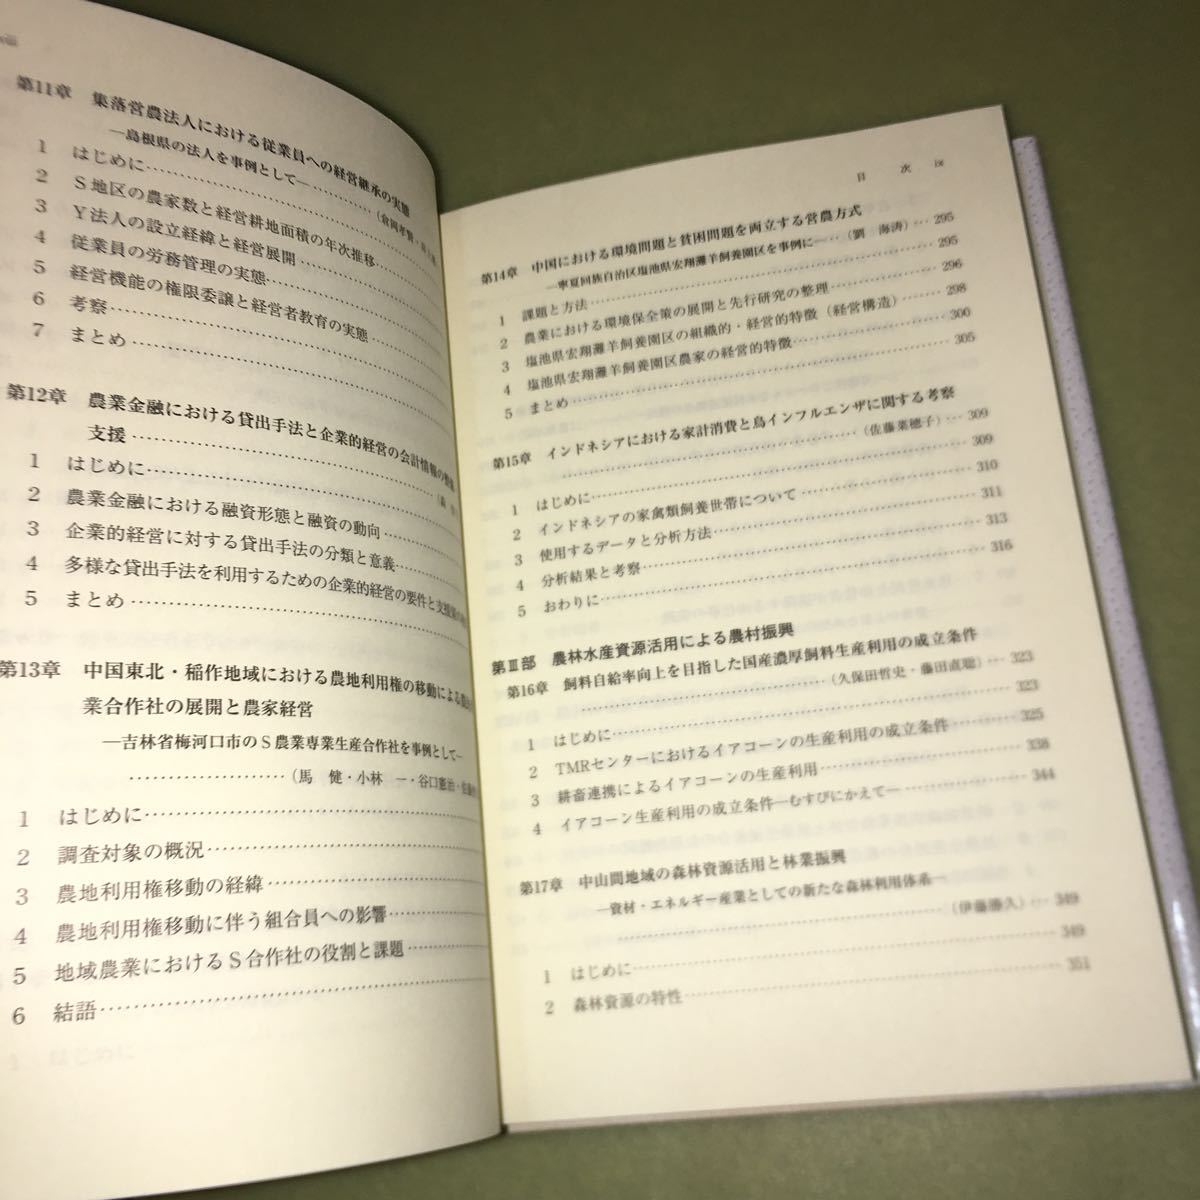 第11章 集落営農法人における従業員への経営継承の実態
―島根県の法人を事例として―…………
1 はじめに……………………
2 S地区の農家数と経営耕地面積の年次推移…………
3 Y法人の設立経緯と経営展開……………
4 従業員の労務管理の実態……………
5 経営機能の権限委譲と経営者教育の実態…………
6 考察……………………
7 まとめ……………………
第12章 農業金融における貸出手法と企業的経営の会計情報の
支援……………………
1 はじめに……………………
2 農業金融における融資形態と融資の動向…………
3 企業的経営に対する貸出手法の分類と意義…………
4 多様な貸出手法を利用するための企業的経営の要件と支援
5 まとめ……………………
第13章 中国東北・稲作地域における農地利用権の移動による
業合作社の展開と農家経営
―吉林省梅河口市のS農業専業生産合作社を事例として―
……………………(馬 健・小林 一・谷口憲治・
1 はじめに……………………
2 調査対象の概況……………………
3 農地利用権移動の経緯……………………
4 農地利用権移動に伴う組合員への影響…………
5 地域農業におけるS合作社の役割と課題…………
6 結語……………………
目 次 ix
第14章 中国における環境問題と貧困問題を両立する営農方式
―寧夏回族自治区塩池県宏翔灘羊飼養園区を事例に―‥(劉 海涛)……295
1 課題と方法……………………295
2 農業における環境保全策の展開と先行研究の整理……………296
3 塩池県宏翔灘羊飼養園区の組織的・経営的特徴（経営構造）………298
4 塩池県宏翔灘羊飼養園区農家の経営的特徴……………300
5 まとめ……………………305
第15章 インドネシアにおける家計消費と鳥インフルエンザに関する考察
……………………(佐藤菜穂子)……309
1 はじめに……………………309
2 インドネシアの家禽類飼養世帯について……………310
3 使用するデータと分析方法……………311
4 分析結果と考察……………………313
5 おわりに……………………316
第Ⅲ部 農林水産資源活用による農村振興
第16章 飼料自給率向上を目指した国産濃厚飼料生産利用の成立条件
……………………(久保田哲史・藤田直聡)……323
1 はじめに……………………323
2 TMRセンターにおけるイアコーンの生産利用の成立条件………325
3 耕畜連携によるイアコーンの生産利用……………338
4 イアコーン生産利用の成立条件―むすびにかえて―……………344
第17章 中山間地域の森林資源活用と林業振興
―資材・エネルギー産業としての新たな森林利用体系―
……………………(伊藤勝久)……349
1 はじめに……………………349
2 森林資源の特性……………………351